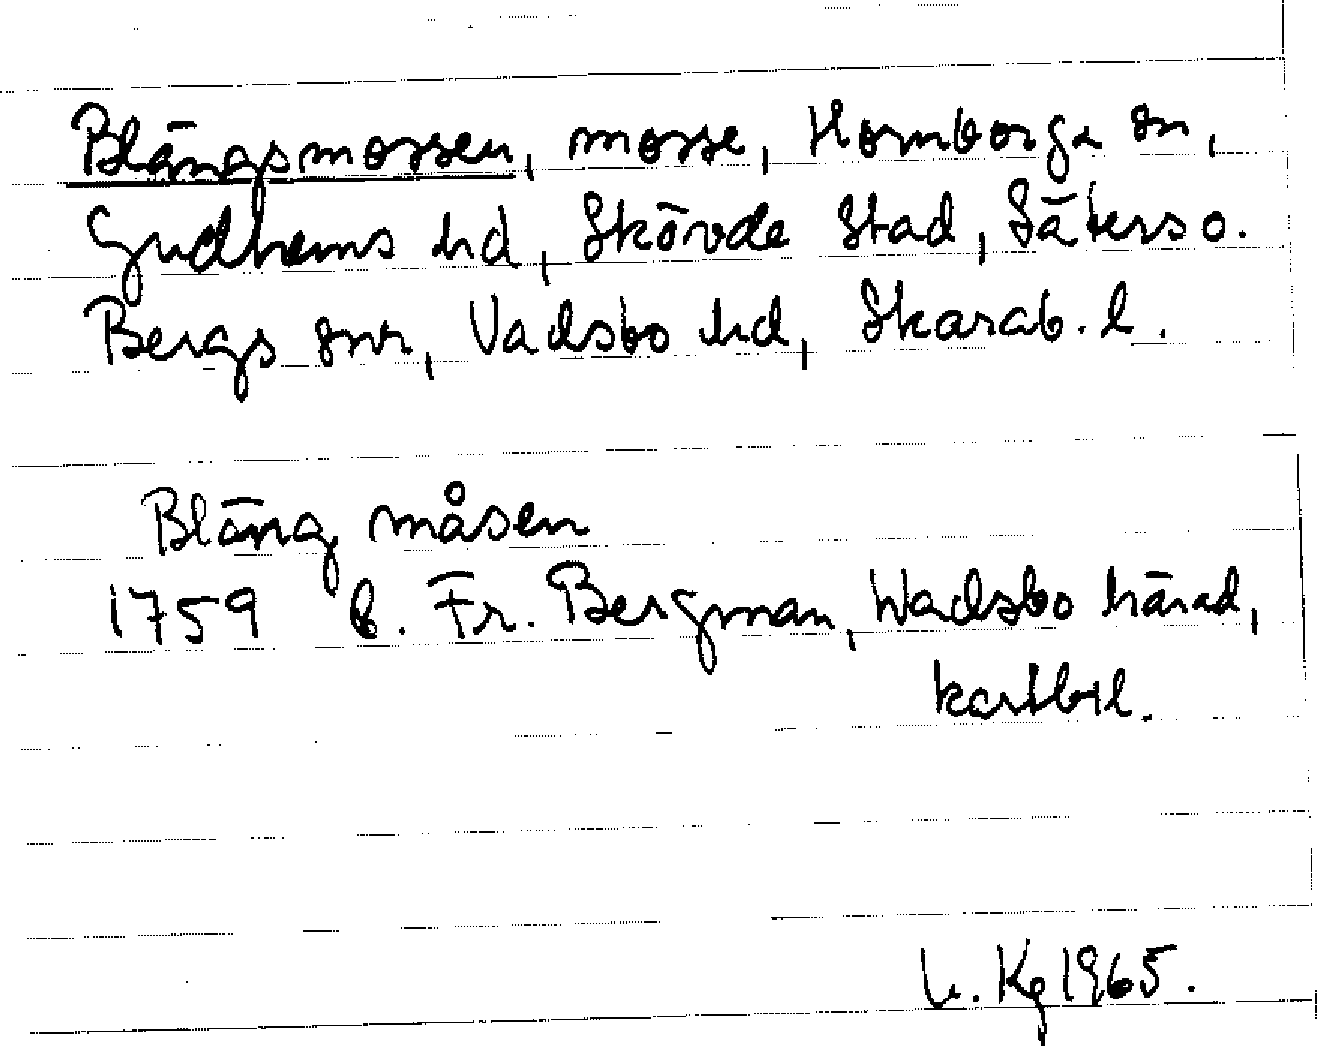 Blängsmossen, mosse, Hornborga sn,
Gudhems hd, Skövde Stad, Säters o.
Bergs snr, Vadsbo hd, Skarab. l.
Bläng måsen
1759 C. Fr. Bergman, Wadsbo härad,
kartbil.
U. Kg 1965.